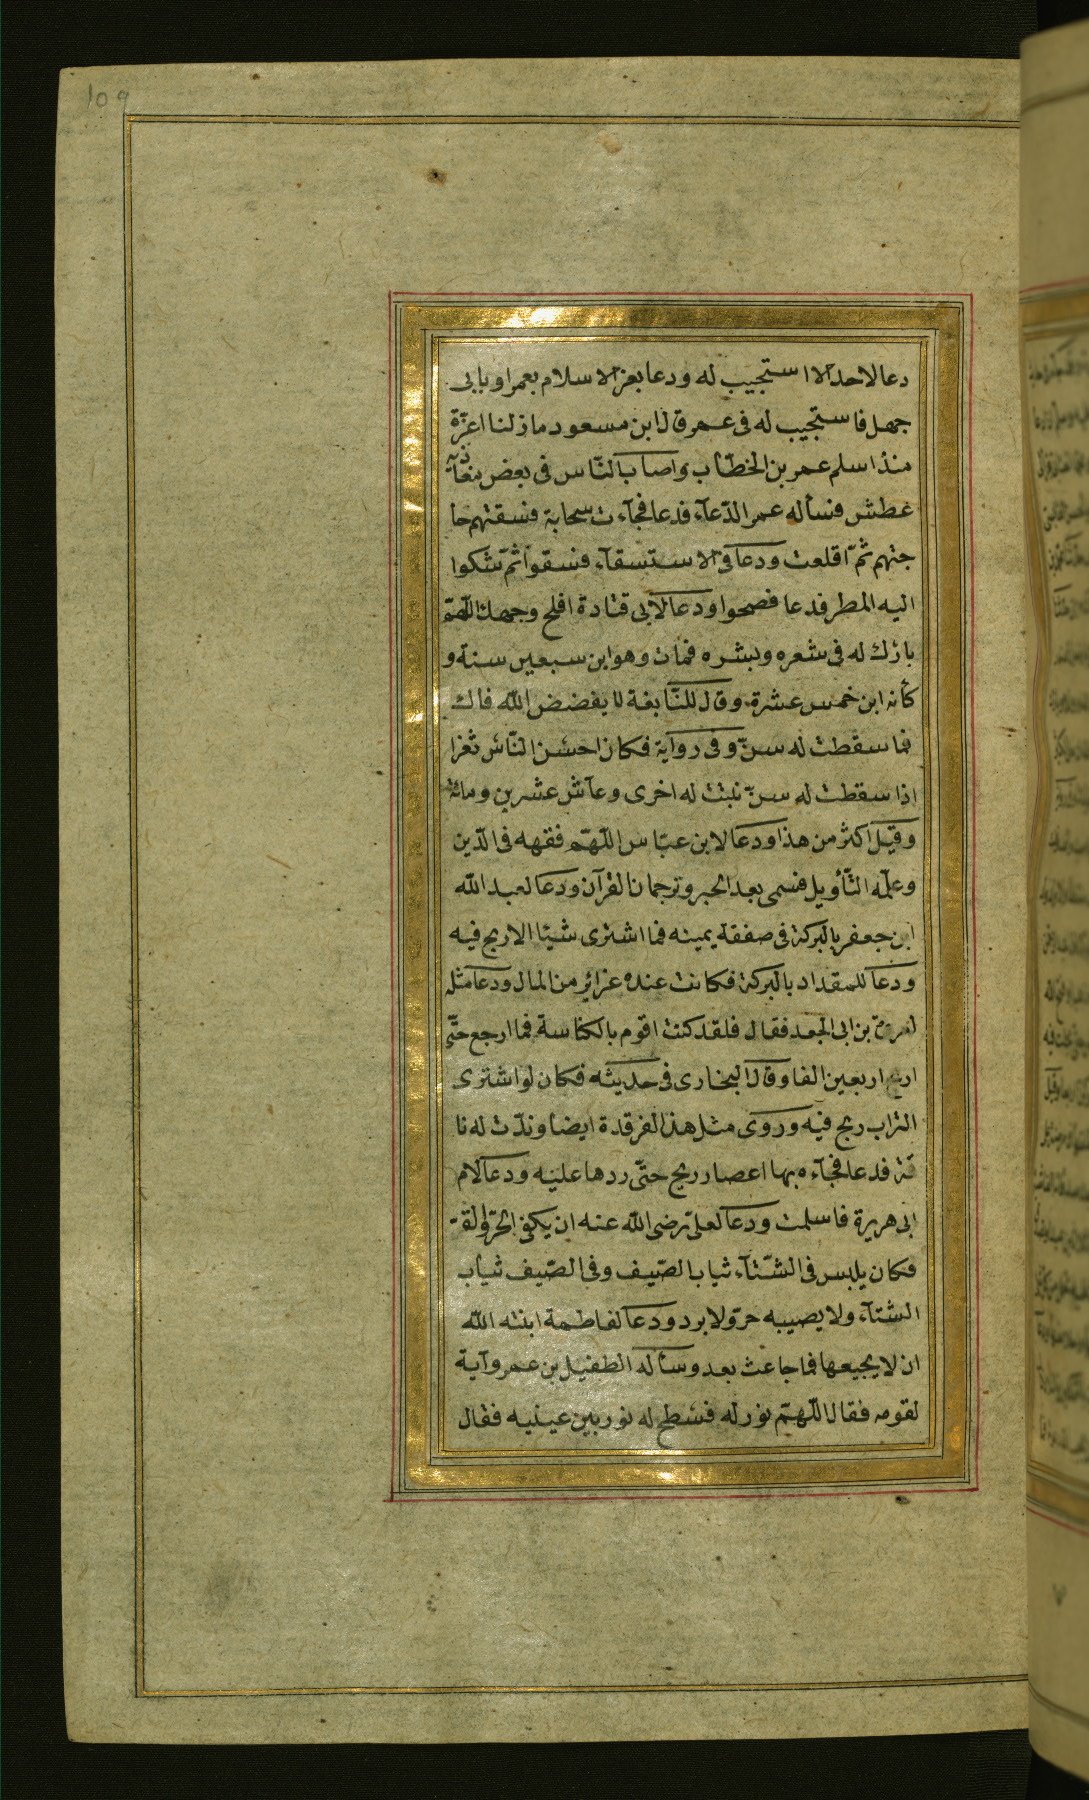 109
دعا لاحد الا استجيب له ودعا بعز الاسلام بعمر او بابى
جهل فاستجيب له فى عمر قال ابن مسعود مازلنا اعزّة
منذ اسلم عمر بن الخطّاب واصاب النّاس فى بعض مغازيه
عطش فسأله عمر الدّعآء فدعا فجآءت سحابة فسقتهم حا
جتهم ثمّ اقلعت ودعا فى الاستسقآء فسقوا ثمّ شكوا
اليه المطر فدعا فصحوا ودعا لابى قتادة افلح وجهك اللّهمّ
بارك له فى شعره وبشره فمات وهو ابن سبعين سنة و
كأنه ابن خمس عشرة وقال للنّابغة لا يفضض الله فاك
فما سقطت له سنّ وفى رواية فكان احسن النّاس ثغرا
اذا سقطت له سنّ نبتت له اخرى وعاش عشرين ومائة
وقيل اكثر من هذا ودعا لابن عبّاس اللّهمّ فقهه فى الدّين
وعلّمه التّأويل فسمى بعد الحبر وترجمان القرآن ودعا لعبد الله
ابن جعفر بالبركة فى صفقة يمينه فما اشترى شيئا الا ربح فيه
ودعا للمقداد بالبركة فكانت عنده غرائر من المال ودعا مثله
لعروة بن ابى الجعد فقال فلقد كنت اقوم بالكناسة فما ارجع حتّى
اربح اربعين الفا وقال البخارى فى حديثه فكان لو اشترى
التراب ربح فيه وروى مثل هذا لغرقدة ايضا وندّت له نا
قة فدعا فجآءه بها اعصار ريح حتّى ردها عليه ودعا لام
ابى هريرة فاسلمت ودعا لعلىّ رضى الله عنه ان يكفى الحرّ والقرّ
فكان يلبس فى الشّتآء ثياب الصّيف وفى الصّيف ثياب
الشتآء ولا يصيبه حرّ ولا برد ودعا لفاطمة ابنته الله
ان لا يجيعها فما جاعت بعد وسأله الطفيل بن عمرو آية
لقومه فقال اللّهمّ نور له فسطع له نور بين عينيه فقال